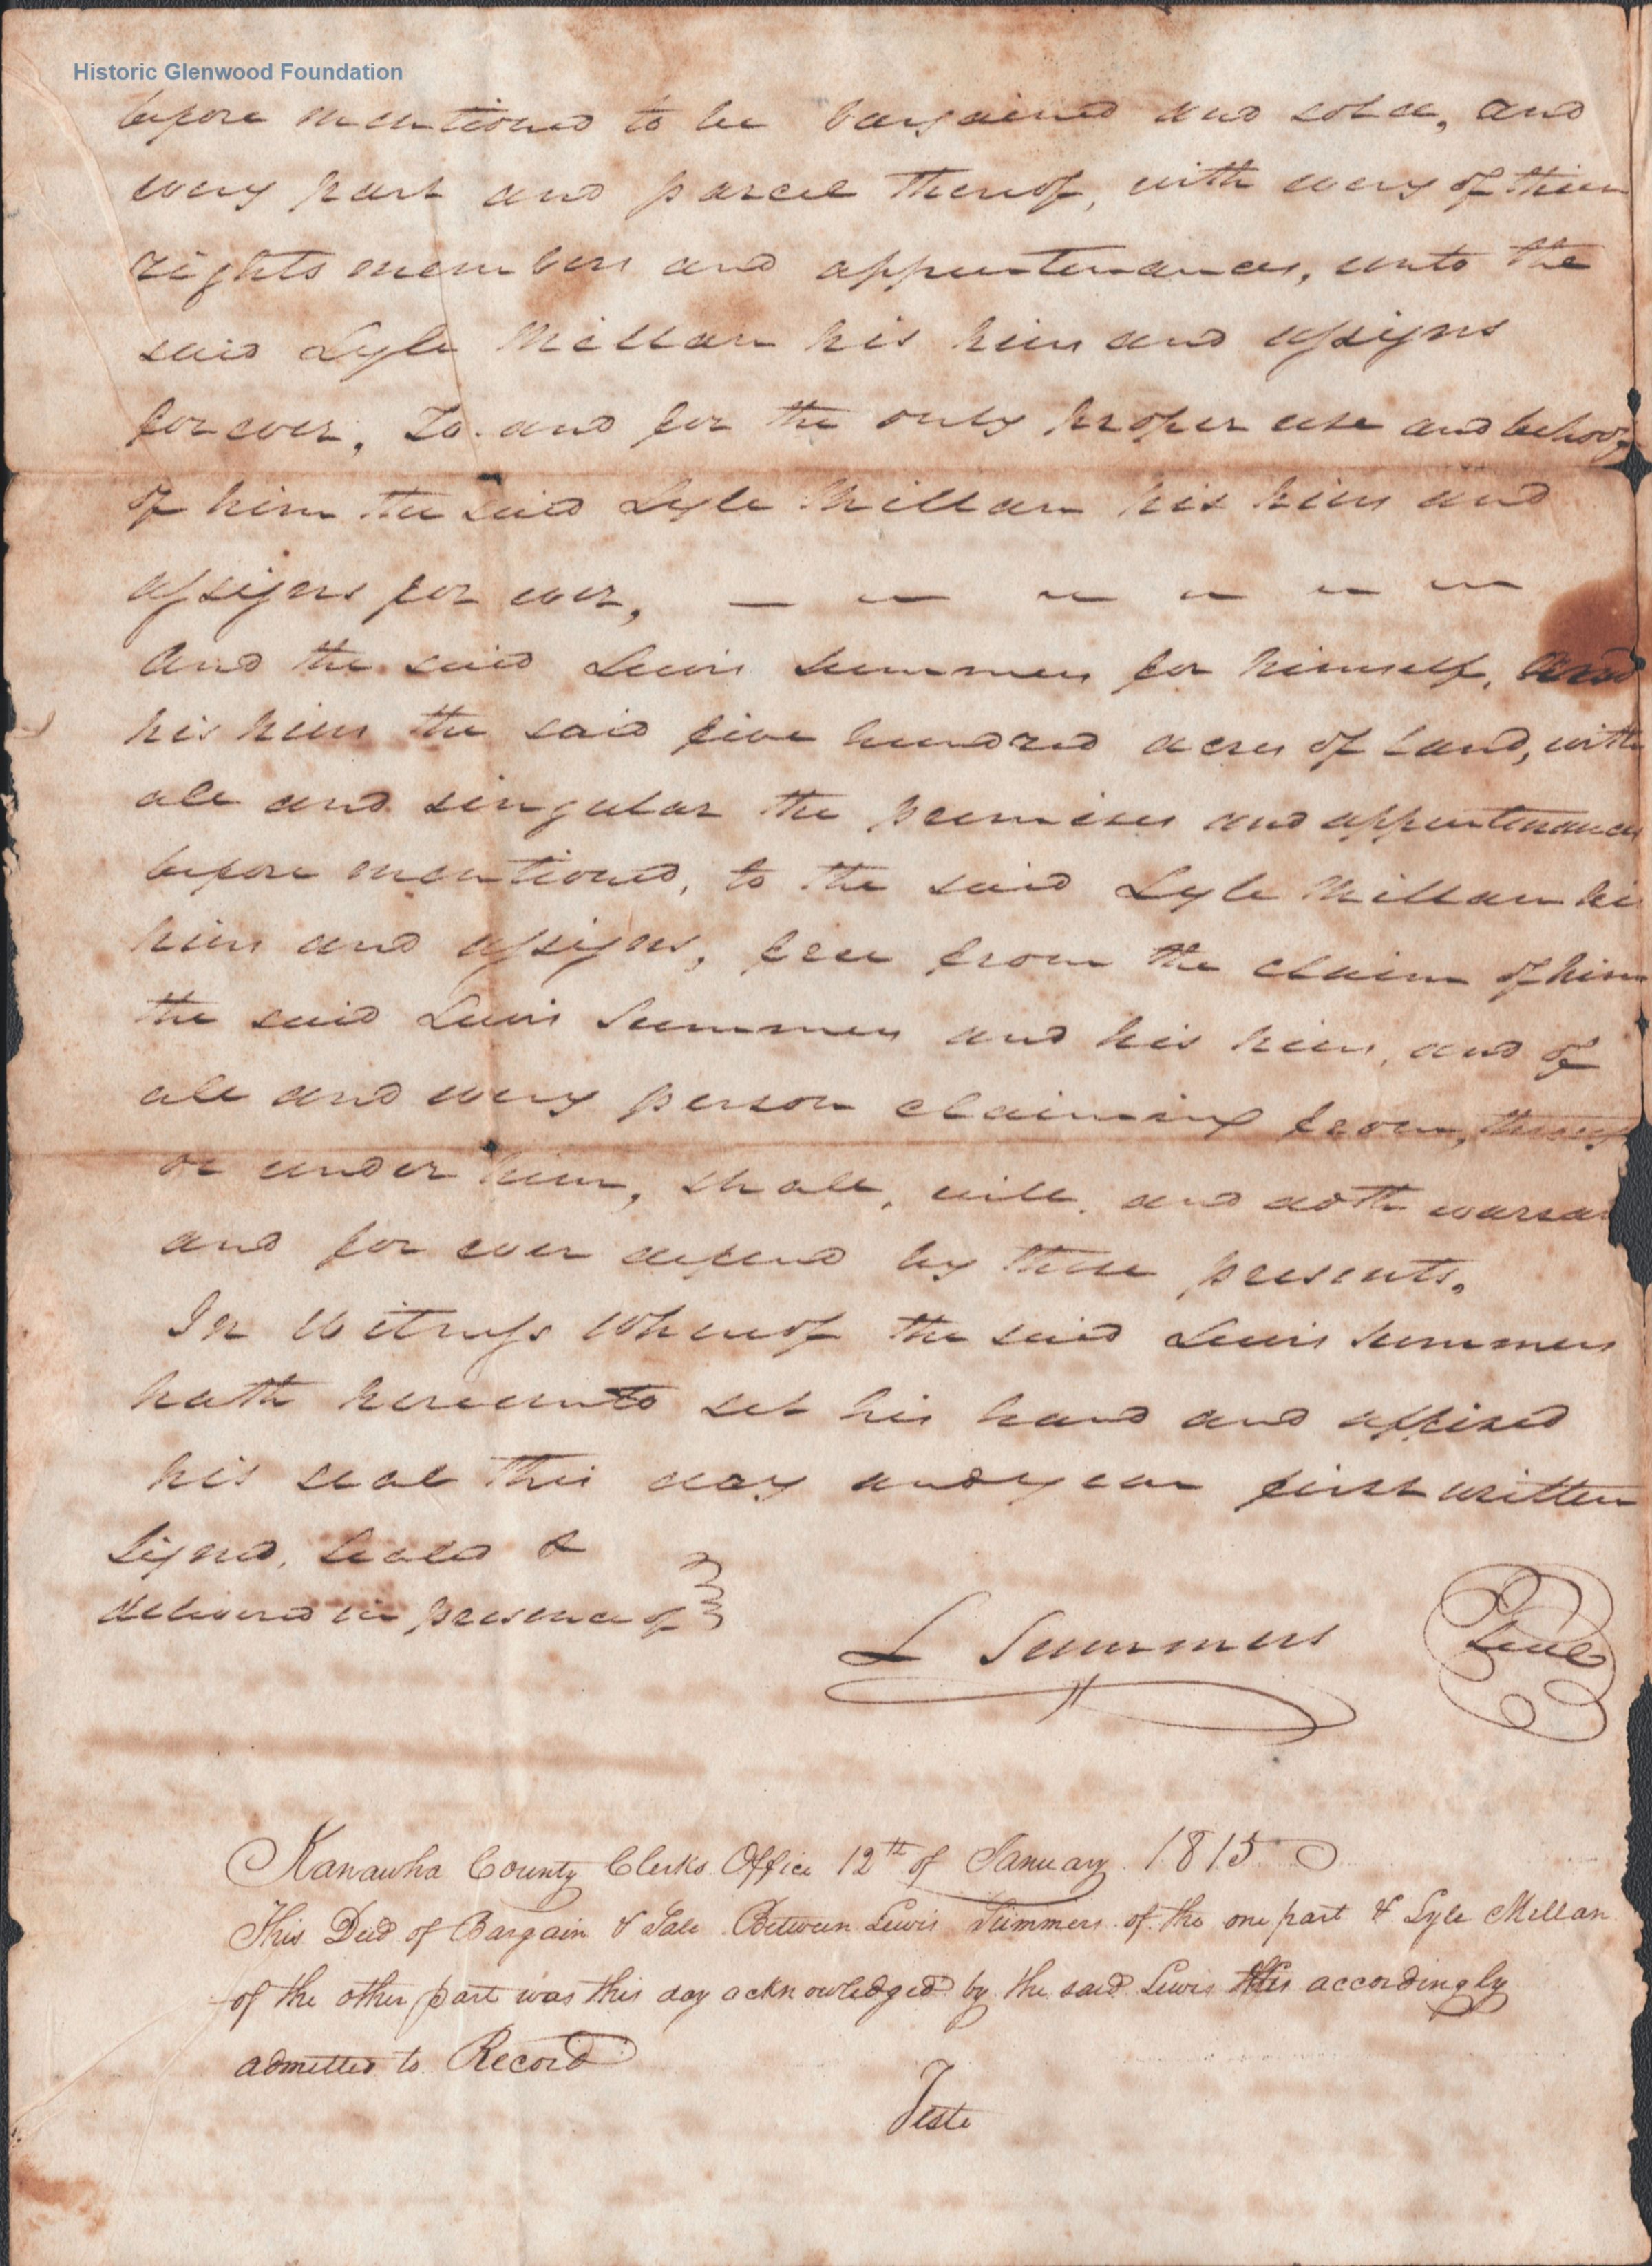 Historic Glenwood Foundation
before mentioned to be bargained and sold, and
every part and parcel thereof, with every of their
rights members and appurtenances, unto the
said Lyle Millan his heirs and assigns
forever. To and for the only proper use and behoof
of him the said Lyle Millan his heirs and
assigns for ever, — — — — — —
And the said Lewis Summers for himself, and
his heirs the said five hundred acres of Land, with
all and singular the premises and appurtenances
before mentioned, to the said Lyle Millan his
heirs and assigns, free from the claim of him
the said Lewis Summers and his heirs, and of
all and every person claiming from, through
or under him, shall, will, and doth warran
and for ever defend by these presents.
In Witness Whereof the said Lewis Summers
hath hereunto set his hand and affixed
his seal this day and year first written
Signed, Sealed &
delivered in presence of
L Summers Seal
Kanawha County Clerks Office 12th of January 1815
This Deed of Bargain & Sale Between Lewis Summers of the one part & Lyle Millan
of the other part was this day acknowledged by the said Lewis & is accordingly
admitted to Record
Teste